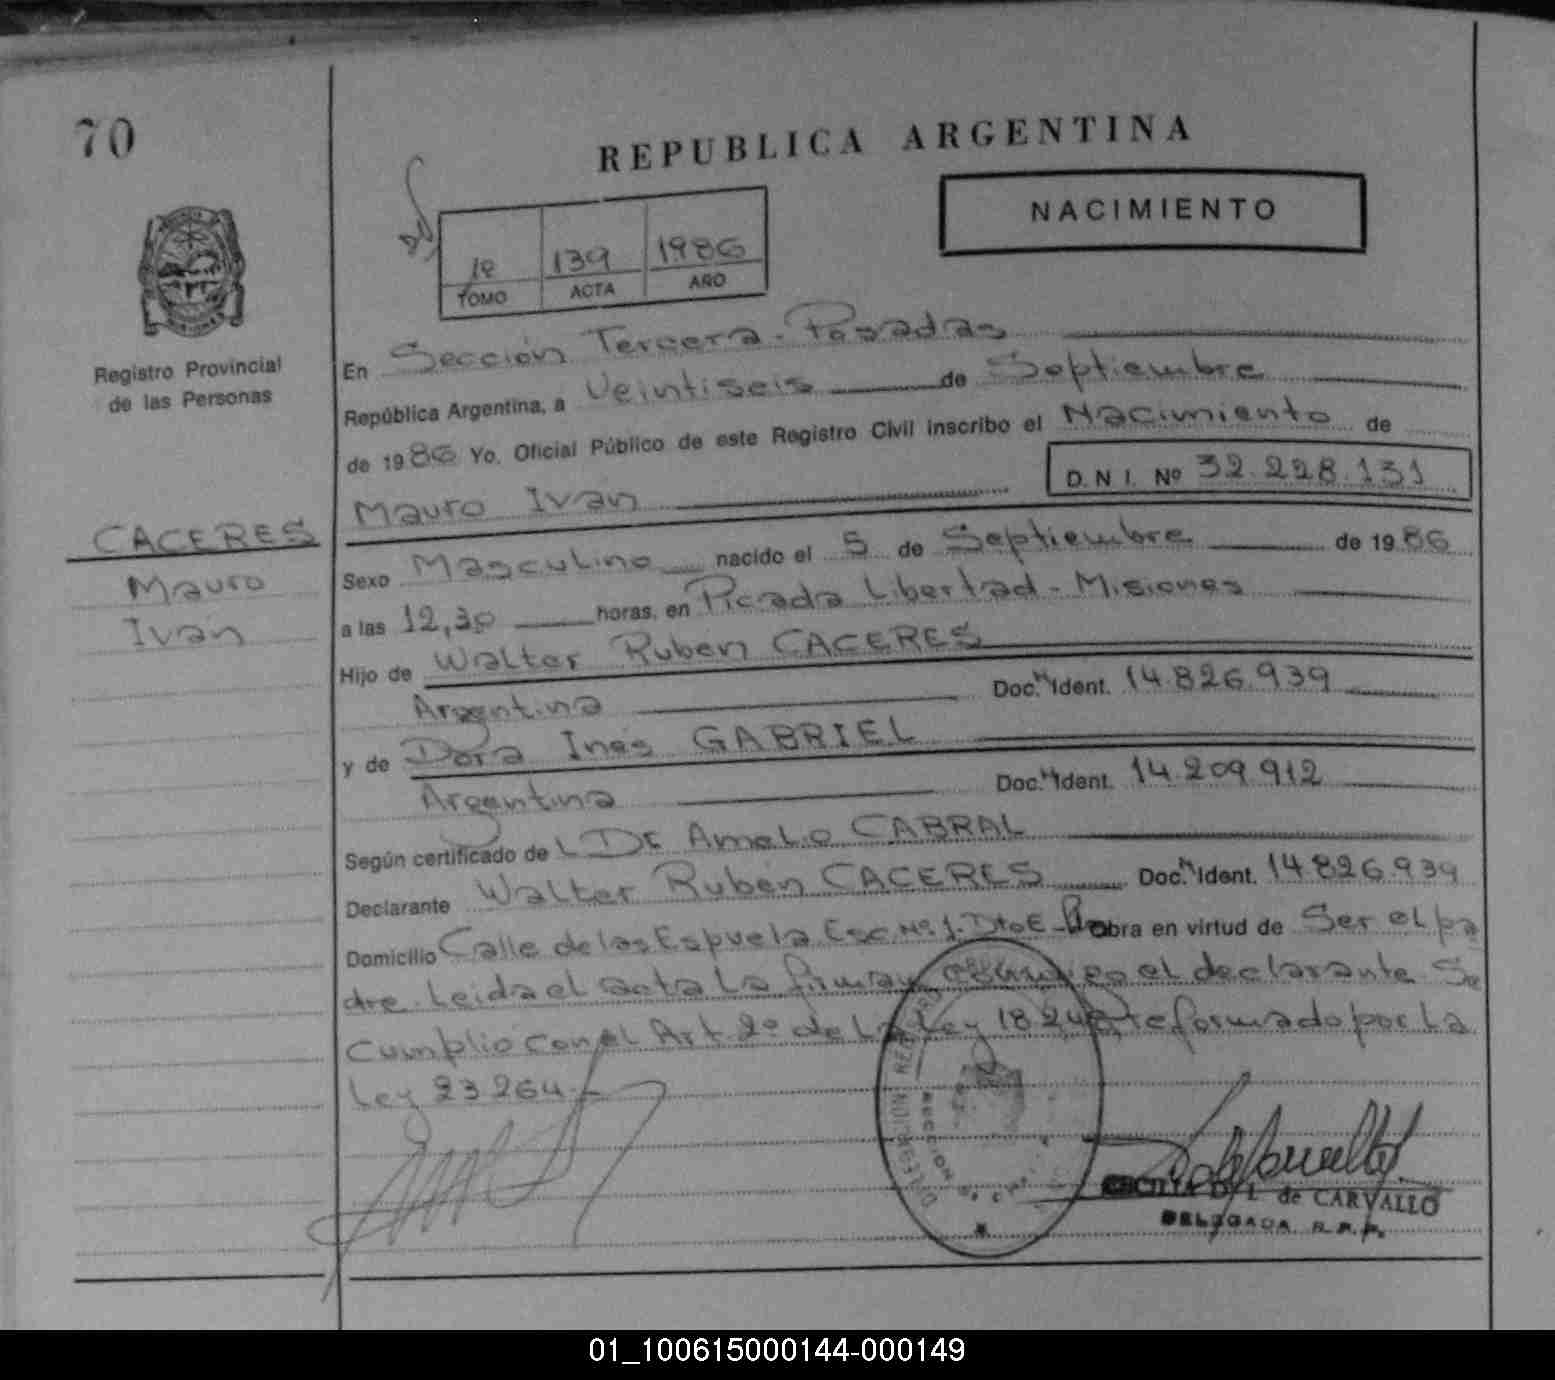 70
REPUBLICA ARGENTINA
NACIMIENTO
1º 139 1986
TOMO ACTA AÑO
Registro Provincial
de las Personas
En Sección Tercera - Posadas
República Argentina, a Veintiseis de Septiembre
de 1986 Yo, Oficial Público de este Registro Civil inscribo el Nacimiento de
D. N. I. Nº 32.228.131
Mauro Ivan
CACERES
Mauro
Ivan
Sexo Masculino nacido el 5 de Septiembre de 1986
a las 12,30 horas, en Picada Libertad - Misiones
Hijo de Walter Ruben CACERES
Argentina Doc. Ident. 14.826.939
y de Dora Ines GABRIEL
Argentina Doc. Ident. 14.209.912
Según certificado de L Dr Amelio CABRAL
Declarante Walter Ruben CACERES Doc. Ident. 14.826.939
Domicilio Calle de las Espuela Esc. Nº 1. Dto E - obra en virtud de Ser el pa
dre. Leida el acta La firman el declarante. Se
cumplio con el Art. 2º de La Ley 18248 reformado por La
Ley 23264.-
DELEGACION
SECCION
de CARVALLO
DELEGADA R.P.P.
01_100615000144-000149